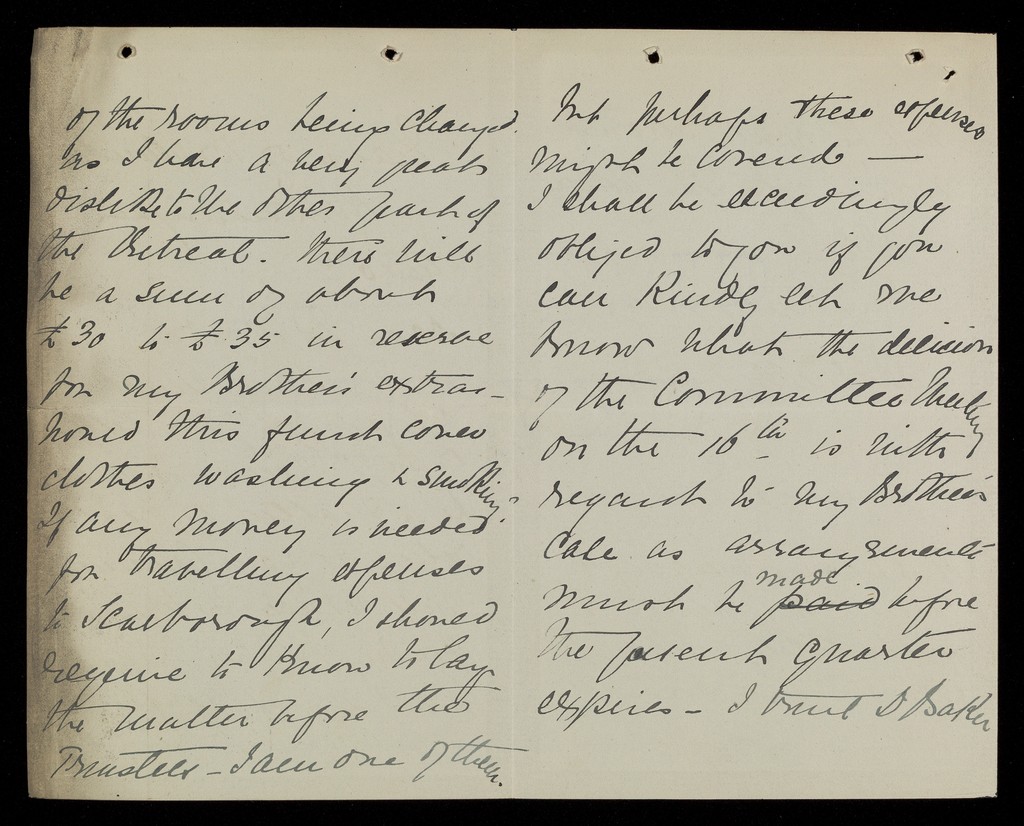 of the rooms being changed.
as I have a very great
dislike to the other part of
the Retreat. There will
be a sum of about
£30 to £35 in reserve
for my Brother's extras -
would this fund cover
clothes washing & smoking?
If any money is needed
for travelling expenses
to Scarborough, I should
require to know to lay
the matter before the
Trustees - I am one of them.
But perhaps these expenses
might be covered —
I shall be exceedingly
obliged to you if you
can kindly let me
know what the decision
of the Committee Meeting
on the 16th is with
regard to my Brother's
case as arrangements
must be paid made before
the present quarter
expires - I trust Dr Baker